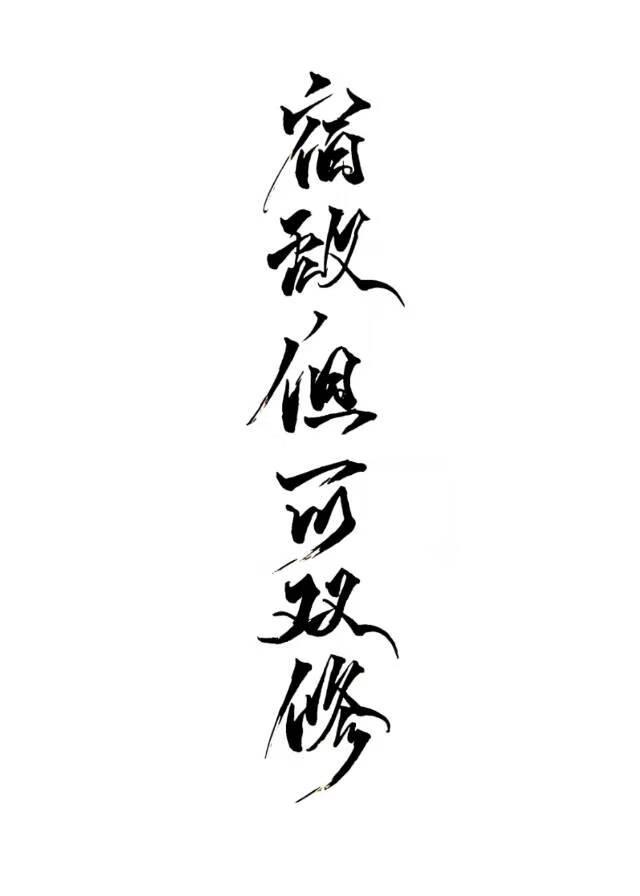 宿敌但可双修